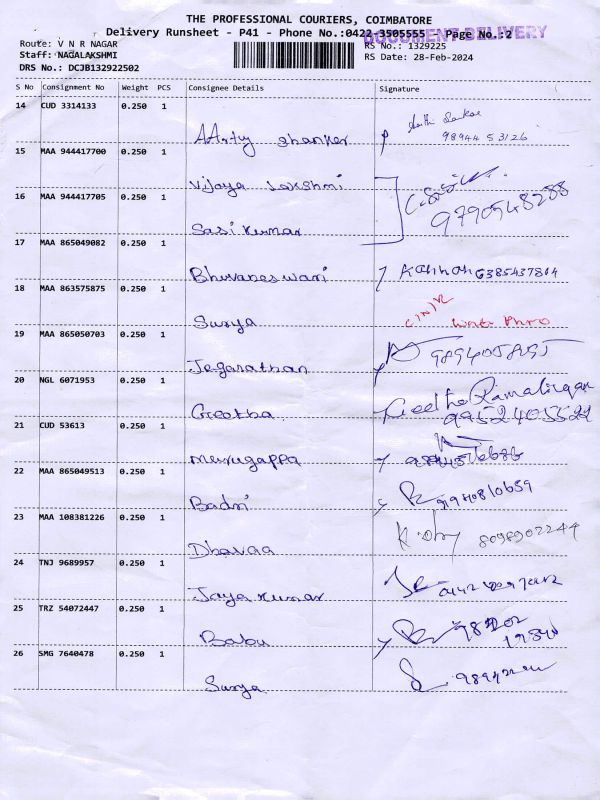 THE PROFESSIONAL COURIERS, COIMBATORE
Delivery Runsheet - P41 - Phone No.:0422-3505555 - Page No.:2
DOCUMENT DELIVERY
Route: V N R NAGAR
RS No.: 1329225
Staff: NAGALAKSHMI
RS Date: 28-Feb-2024
DRS No.: DCJB132922502
S No Consignment No Weight PCS Consignee Details Signature
14 CUD 3314133 0.250 1
AArty Shanker 98944 53126
15 MAA 944417700 0.250 1
Vijaya Lakshmi
16 MAA 944417705 0.250 1
9790548288
Sasi Kumar
17 MAA 865049082 0.250 1
Bhuvaneswari Kannan 6385437814
18 MAA 863575875 0.250 1
Surya
19 MAA 865050703 0.250 1
Jeganathan
20 NGL 6071953 0.250 1
Geetha Geetha Ramalingam
9952405522
21 CUD 53613 0.250 1
Murugappa
22 MAA 865049513 0.250 1
Badri
23 MAA 108381226 0.250 1
Dhavaa 8098902244
24 TNJ 9689957 0.250 1
Jaya Kumar
25 TRZ 54072447 0.250 1
Babu
26 SMG 7640478 0.250 1
Surya